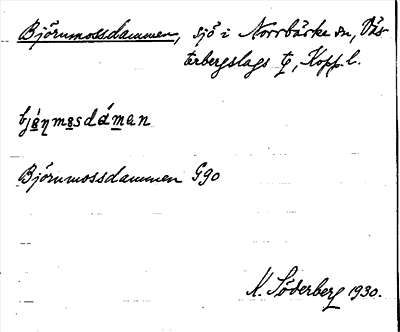 Björnmossdammen, sjö i Norrbärke sn, Väs-
terbergslags tg, Kopp. l.
bjɵ́ɳmɵsdámən
Björnmossdammen G90
K. Söderberg 1930.